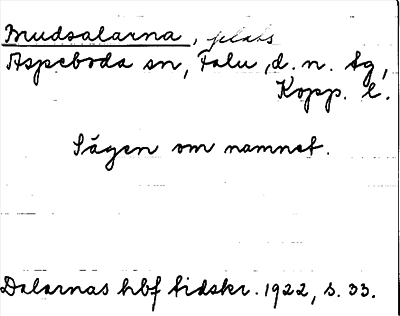 Brudsalarna, plats
Aspeboda sn, Falu, d. n. tg,
Kopp. l.
Sägen om namnet.
Dalarnas hbf tidskr. 1922, s. 33.